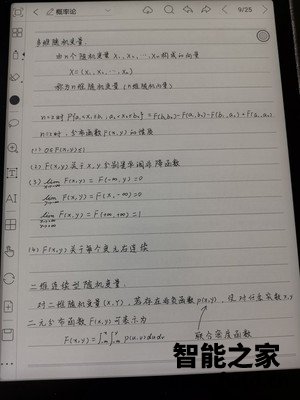 概率论
9/25
多维随机变量.
由n个随机变量 X₁, X₂, …, Xₙ 构成的向量
X=(X₁, X₂, …, Xₙ)
称为n维随机变量 (n维随机向量)
n=2时 P{a₁<X₁≤b₁, a₂<X₂≤b₂} = F(b₁,b₂)-F(a₁,b₂)-F(b₁,a₂)+F(a₁,a₂)
n=2时, 分布函数F(x,y)的性质
(1) 0≤F(x,y)≤1
(2) F(x,y)关于x,y分别是单调非降函数
(3) lim F(x,y) = F(-∞,y)=0
lim F(x,y) = F(x,-∞)=0
lim F(x,y) = F(+∞,+∞)=1
(4) F(x,y)关于每个变元右连续
二维连续型随机变量.
对二维随机变量(X,Y), 若存在非负函数p(x,y), 使对任意实数x,y
二元分布函数F(x,y)可表示为
F(x,y)=∫∫p(u,v)dudv
联合密度函数
智能之家